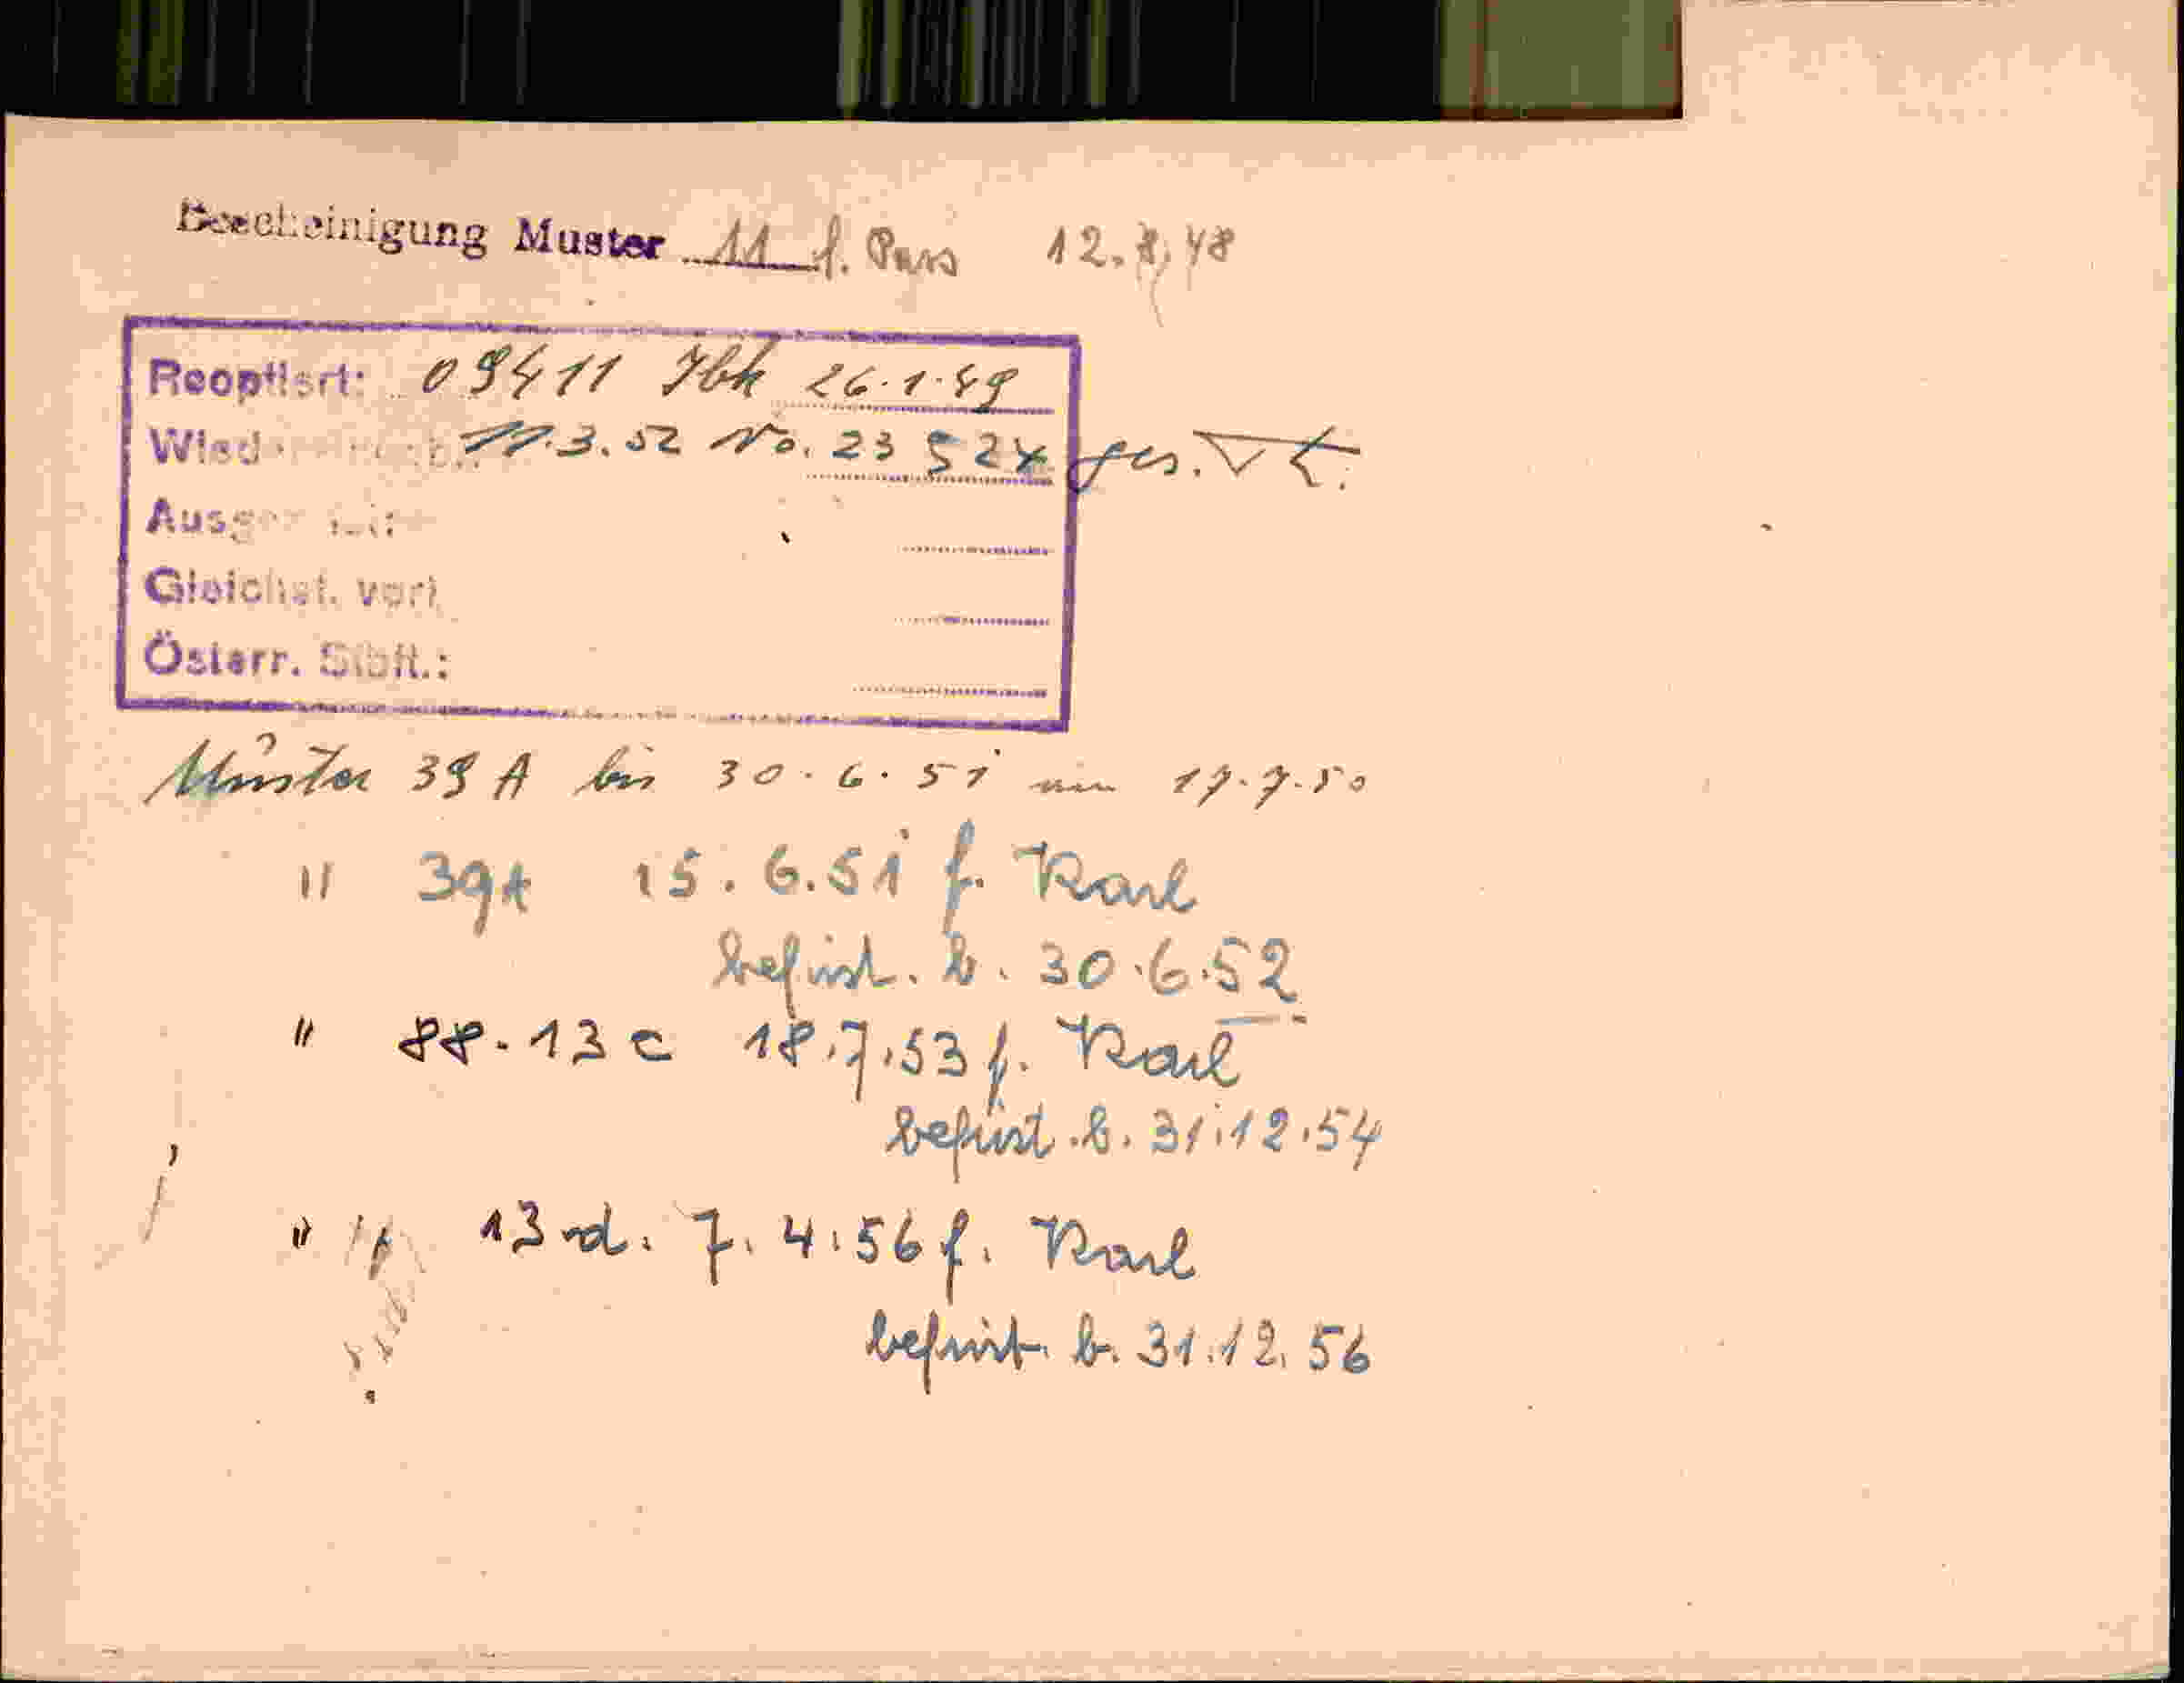 Bescheinigung Muster 11 f. Pass 12.8.48
Reoptiert: 09411 Jbk 26.1.49
11.3.52 No. 23 524 ges.
Gleichst. verl.
Österr. Stbft.:
Muster 39 A bis 30.6.51 am 17.7.50
" 39A 15.6.51 f. Karl
befrist. b. 30.6.52
" 88.13c 18.7.53 f. Karl
befrist. b. 31.12.54
" 13d. 7.4.56 f. Karl
befrist. b. 31.12.56